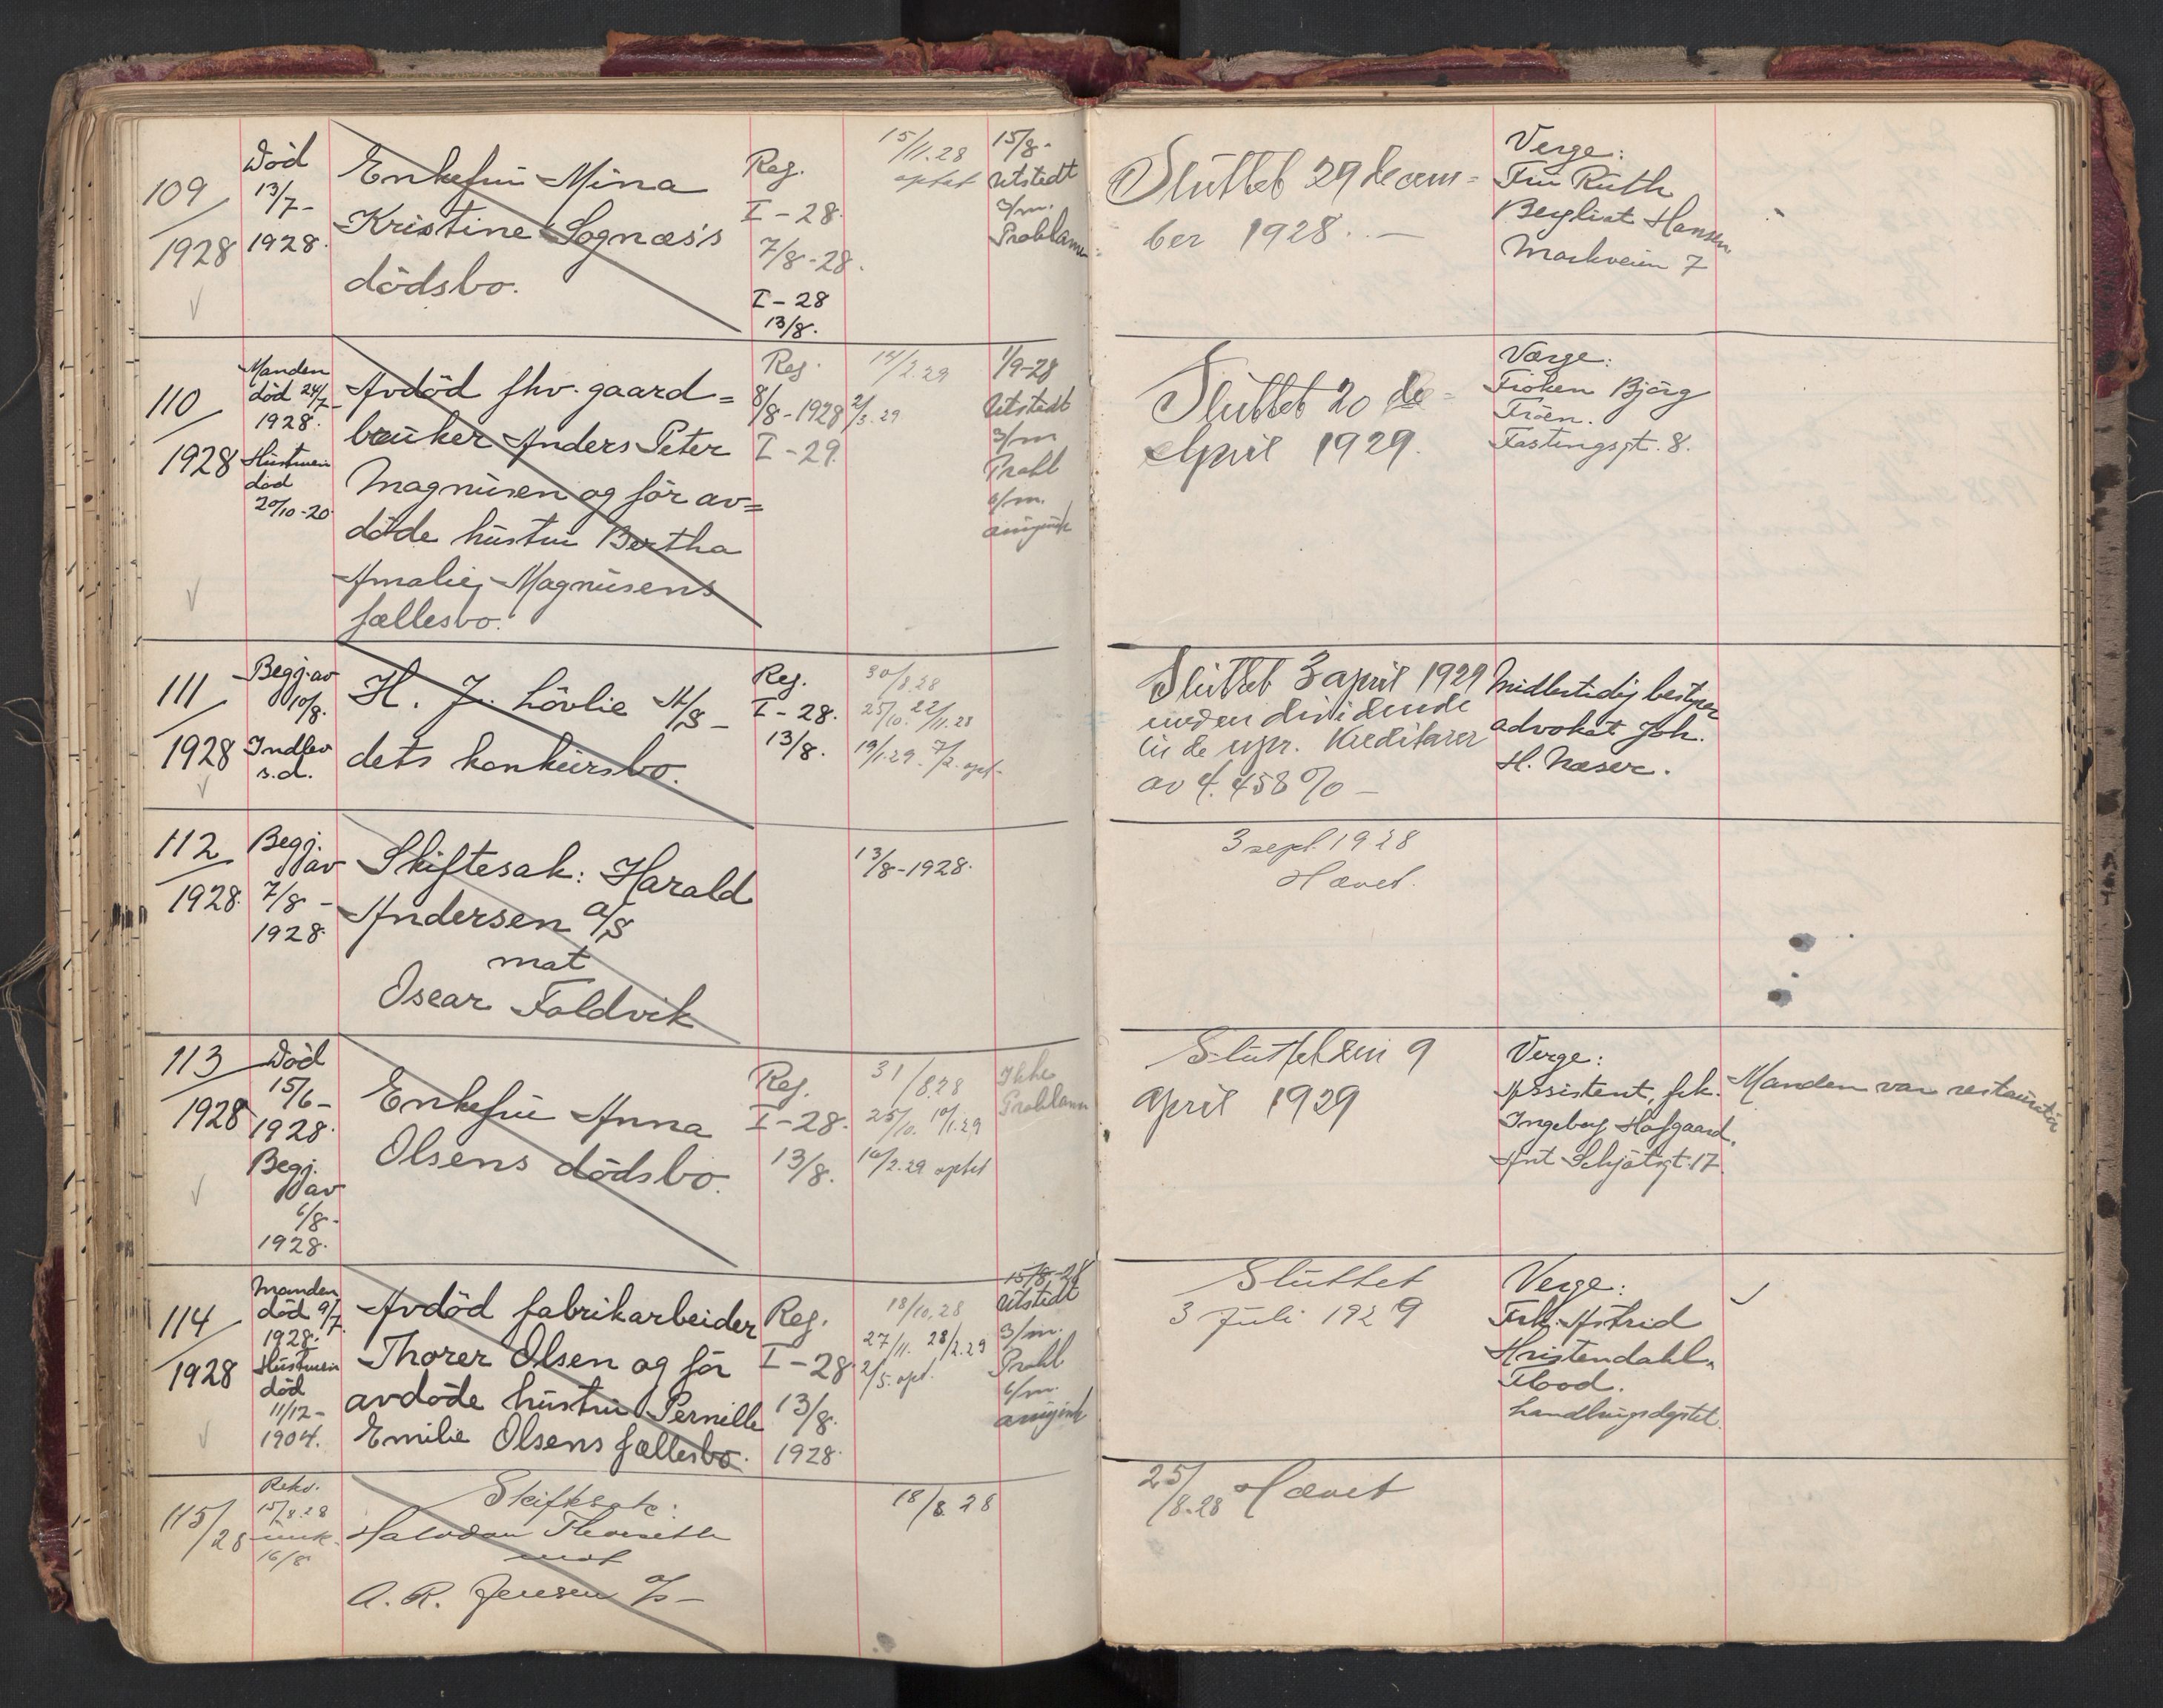 109
1928
Död
13/7-
1928.
Enkefru Mina
Kristine Sognæs's
dödsbo.
Reg.
I-28.
7/8-28.
I-28
13/8.
15/11.28
optat
15/8-
Utstedt
3/m.
Proklama
Sluttet 29 decem=
ber 1928.-
Verge:
Fru Ruth
Bergliot Hansen
Markveien 7
110
1928
Manden
död 24/7-
1928.
Hustruen
död
20/10-20
Avdöd fhv. gaard=
bruker Anders Peter
Magnusen og för av=
döde hustru Bertha
Amalie Magnusens
fællesbo.
Reg.
8/8-1928
I-29.
14/2.29
2/3.29
1/9-28
Utstedt
3/m
Prokl
6/m.
Sluttet 20 de
April 1929.
Værge:
Fröken Björg
Fröen.
Fastingsgt. 8.
111
1928
Begj. av
10/8.
Indlev
s.d.
H. J. Lövlie A/S-
dets konkursbo.
Reg.
I-28.
13/8.
30/8.28
25/10. 22/11.28
19/1.29. 7/2. opt.
Sluttet 3 april 1929
uden dividende
av 4.458%-
Midlertidig bestyrer
advokat Joh.
H. Næser.
112
1928.
Begj.
av
7/8-
1928.
Skiftesak: Harald
Andersen A/S
mot
Oscar Foldvik
13/8-1928.
3 sept. 1928
Hævet.
113
1928
Död
15/6-
1928.
Begj.
av
6/8-
1928.
Enkefru Anna
Olsens dödsbo.
Reg.
I-28.
13/8.
31/8.28
25/10. 10/1.29
16/2.29 optat
Ikke
Proklama
Sluttet den 9
April 1929
Verge:
Assistent, frk.
Ingeborg Hafgaard.
Ant. Schjötsgt. 17.
Manden var restauratör
114
1928
Manden
död 9/7.
1928.
Hustruen
död
11/12-
1904.
Avdöd fabrikarbeider
Thorer Olsen og för
avdöde hustru Pernille
Emilie Olsens fællesbo.
Reg.
I-28.
13/8.
1928.
18/10.28
27/11. 28/2.29
2/5. opt.
15/8-28
Utstedt
3/m.
Prokl
6/m.
Sluttet
3 Juli 1929
Verge:
Frk. Astrid
Kristendahl
Flood.
115/28
Rekv.
15/8.28
16/8
Skiftesak:
Halvdan
mot
A. R. Jensen A/S-
18/8 28
25/8.28 Hævet